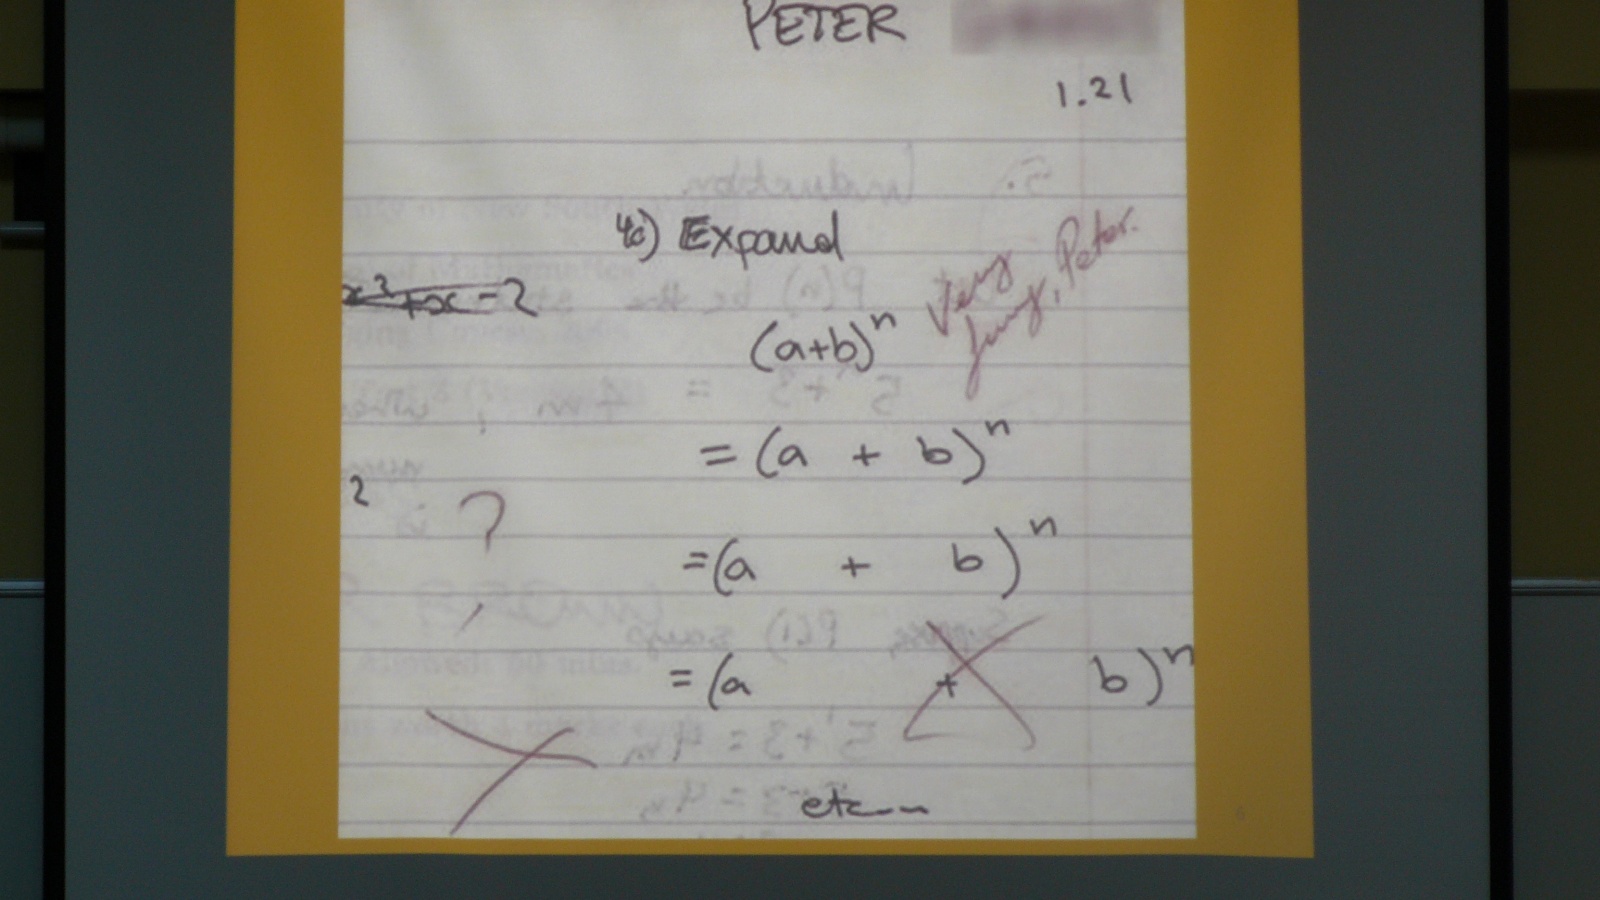 PETER
1.21
4c) Expand
x² + x - 2
Very funny, Peter.
(a+b)ⁿ
= (a + b)ⁿ
2 ?
= (a + b)ⁿ
= (a + b)ⁿ
etc...